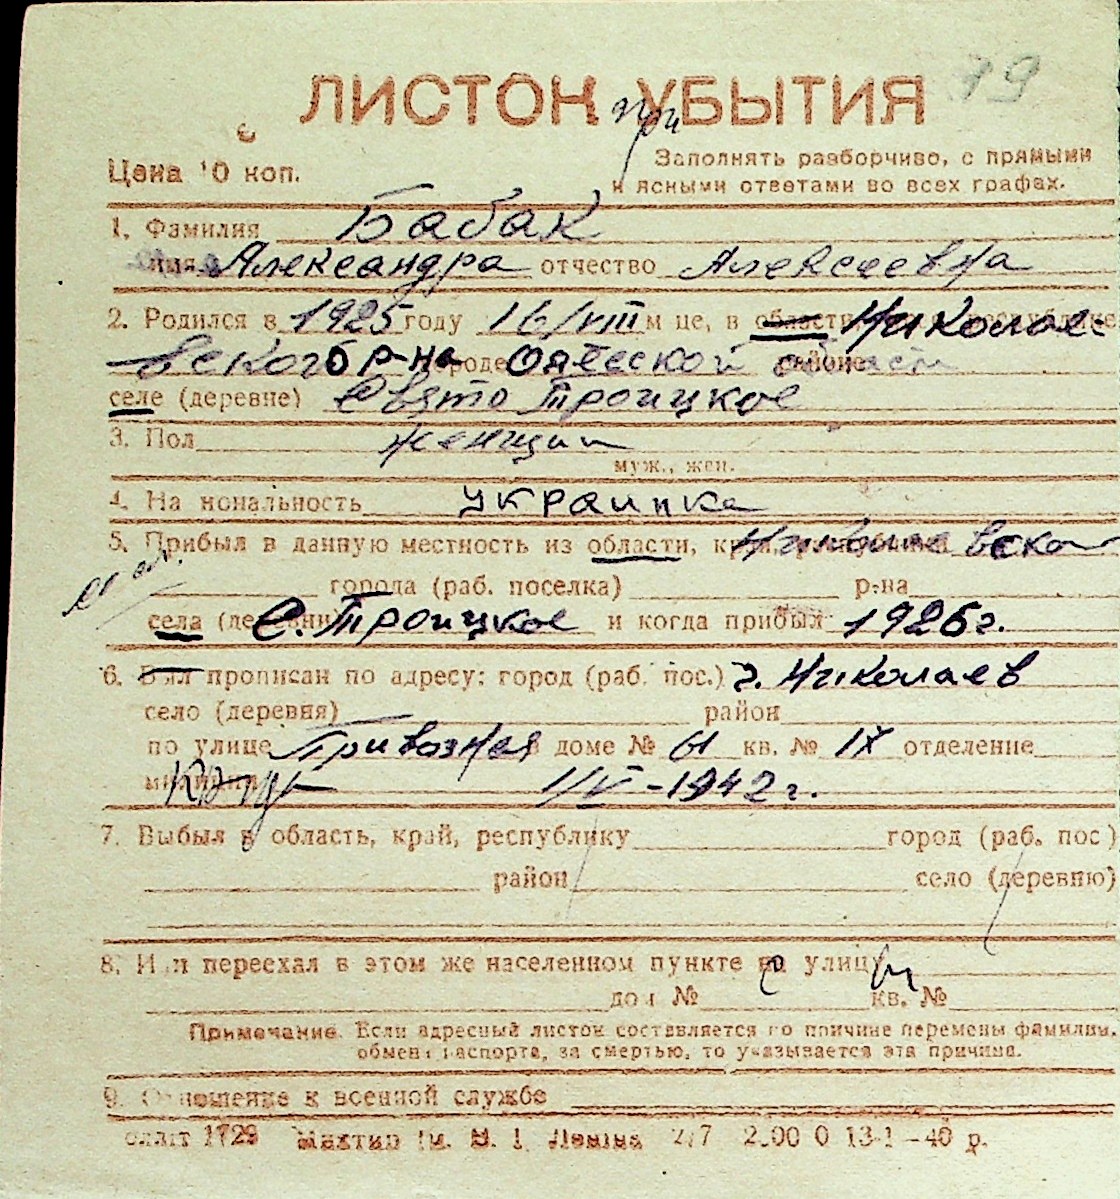 79
ЛИСТОК УБЫТИЯ
при
Цена 10 коп.
Заполнять разборчиво, с прямыми
и ясными ответами во всех графах.
1. Фамилия Бабак
имя Александра отчество Алексеевна
2. Родился в 1925 году 16/VIII м це, в области, Николае
вского р-на городе Одесской области районе
селе (деревне) Свято Троицкое
3. Пол женщин
муж., жен.
4. На иональность украинка
5. Прибыл в данную местность из области, края, Николаевской
города (раб. поселка) р-на
села (деревни) С. Троицкое и когда прибыл 1926 г.
6. Был прописан по адресу: город (раб. пос.) г. Николаев
село (деревня) район
по улице Привозная доме № 61 кв. № IX отделение
милиции 1/V-1942 г.
7. Выбыл в область, край, республику город (раб. пос)
район село (деревню)
8. Или переехал в этом же населенном пункте на улицу
дом № кв. №
Примечание. Если адресный листок составляется по причине перемены фамилии,
обмена паспорта, за смертью, то указывается эта причина.
9. Отношение к военной службе
1729 Ленина 2.00 0 13-1-40 р.